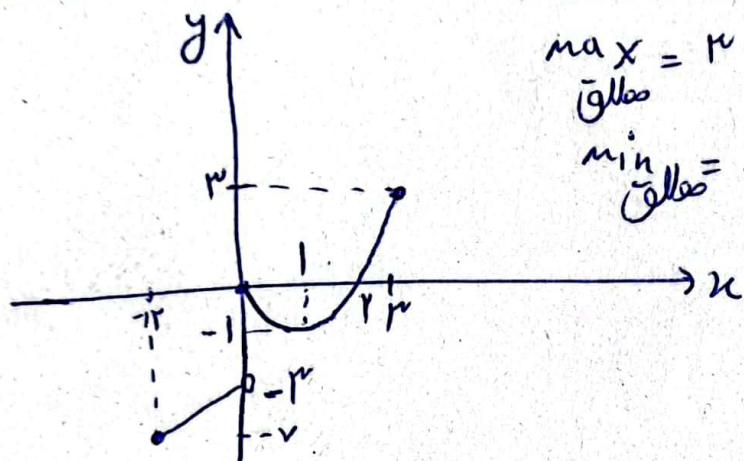 y
max = ۳
مطلق
min =
مطلق
۳
۱
-۲
-۱
۲
۳
x
-۳
-۷